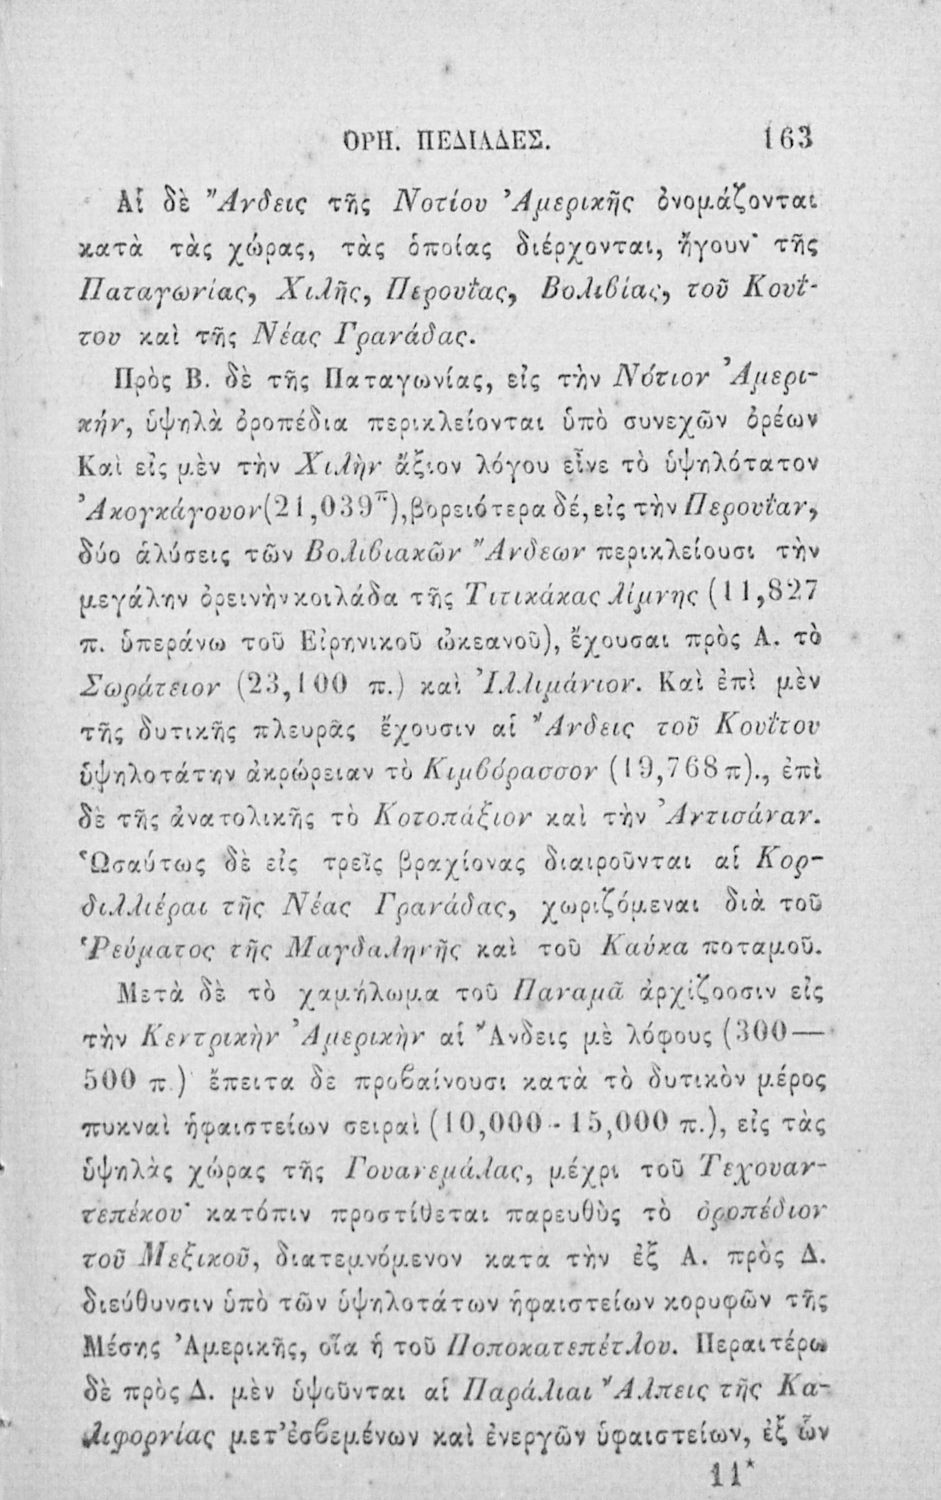 ΟΡΗ. ΠΕΔΙΑΔΕΣ. 163
Αἱ δὲ Ἄνδεις τῆς Νοτίου Ἀμερικῆς ὀνομάζονται
κατὰ τὰς χώρας, τὰς ὁποίας διέρχονται, ἤγουν· τῆς
Παταγωνίας, Χιλῆς, Περουΐας, Βολιβίας, τοῦ Κουΐ-
του καὶ τῆς Νέας Γρανάδας.
Πρὸς Β. δὲ τῆς Παταγωνίας, εἰς τὴν Νότιον Ἀμερι-
κήν, ὑψηλὰ ὀροπέδια περικλείονται ὑπὸ συνεχῶν ὀρέων
Καὶ εἰς μὲν τὴν Χιλὴν ἄξιον λόγου εἶνε τὸ ὑψηλότατον
Ἀκογκάγουον(21,039π),βορειότερα δέ,εἰς τὴν Περουΐαν,
δύο ἁλύσεις τῶν Βολιβιακῶν Ἄνδεων περικλείουσι τὴν
μεγάλην ὀρεινὴν κοιλάδα τῆς Τιτικάκας λίμνης (11,827
π. ὑπεράνω τοῦ Εἰρηνικοῦ ὠκεανοῦ), ἔχουσαι πρὸς Α. τὸ
Σωράτειον (23,100 π.) καὶ Ἰλλιμάνιον. Καὶ ἐπὶ μὲν
τῆς δυτικῆς πλευρᾶς ἔχουσιν αἱ Ἄνδεις τοῦ Κουΐτου
ὑψηλοτάτην ἀκρώρειαν τὸ Κιμβόρασσον (19,768 π)., ἐπὶ
δὲ τῆς ἀνατολικῆς τὸ Κοτοπάξιον καὶ τὴν Ἀντισάναν.
Ὡσαύτως δὲ εἰς τρεῖς βραχίονας διαιροῦνται αἱ Κορ-
διλλιέραι τῆς Νέας Γρανάδας, χωριζόμεναι διὰ τοῦ
Ῥεύματος τῆς Μαγδαληνῆς καὶ τοῦ Καύκα ποταμοῦ.
Μετὰ δὲ τὸ χαμήλωμα τοῦ Παναμᾶ ἀρχίζοοσιν εἰς
τὴν Κεντρικὴν Ἀμερικὴν αἱ Ἄνδεις μὲ λόφους (300—
500 π.)˙ ἔπειτα δε προβαίνουσι κατὰ τὸ δυτικὸν μέρος
πυκναὶ ἡφαιστείων σειραὶ (10,000 - 15,000 π.), εἰς τὰς
ὑψηλὰς χώρας τῆς Γουανεμάλας, μέχρι τοῦ Τεχουαν-
τεπέκου˙ κατόπιν προστίθεται παρευθὺς τὸ ὀροπέδιον
τοῦ Μεξικοῦ, διατεμνόμενον κατὰ τὴν ἐξ Α. πρὸς Δ.
διεύθυνσιν ὑπὸ τῶν ὑψηλοτάτων ἡφαιστείων κορυφῶν τῆς
Μέσης Ἀμερικῆς, οἷα ἡ τοῦ Ποποκατεπέτλου. Περαιτέρω
δὲ πρὸς Δ. μὲν ὑψοῦνται αἱ Παράλιαι Ἄλπεις τῆς Κα-
λιφορνίας μετ᾽ἐσβεμένων καὶ ἐνεργῶν ὑφαιστείων, ἐξ ὧν
11*